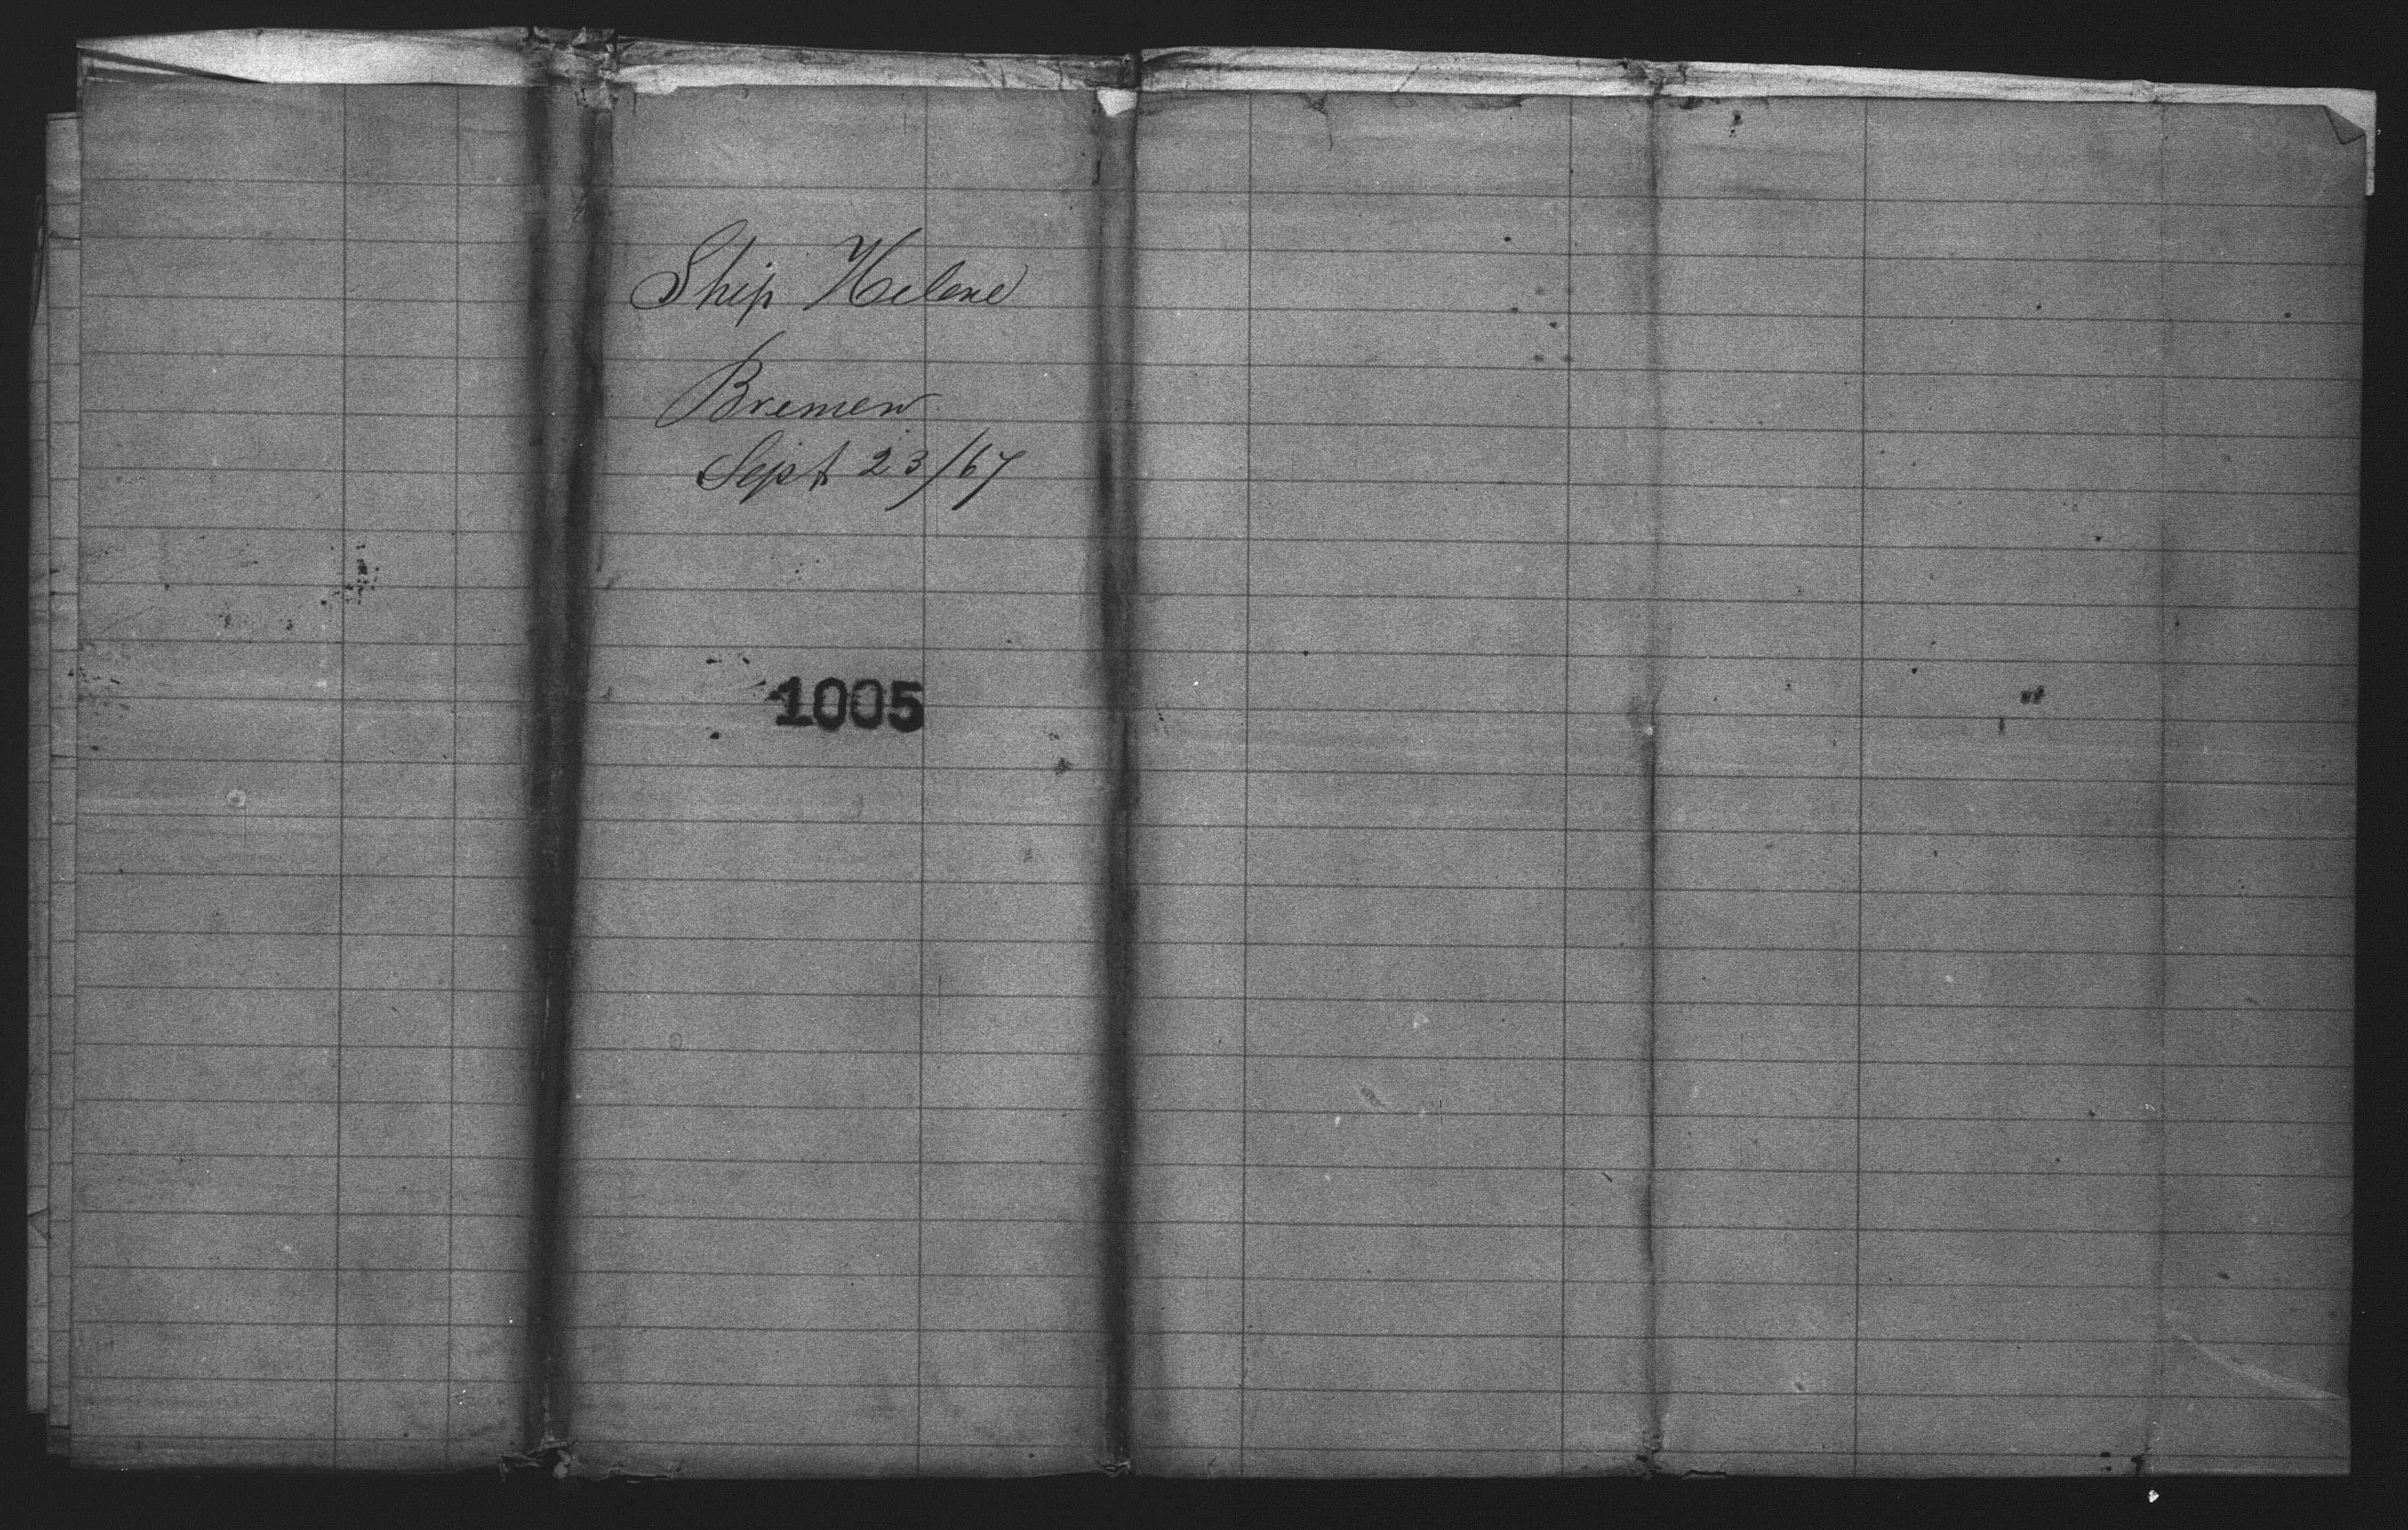 Ship Helene
Bremen
Sept 23/67
1005